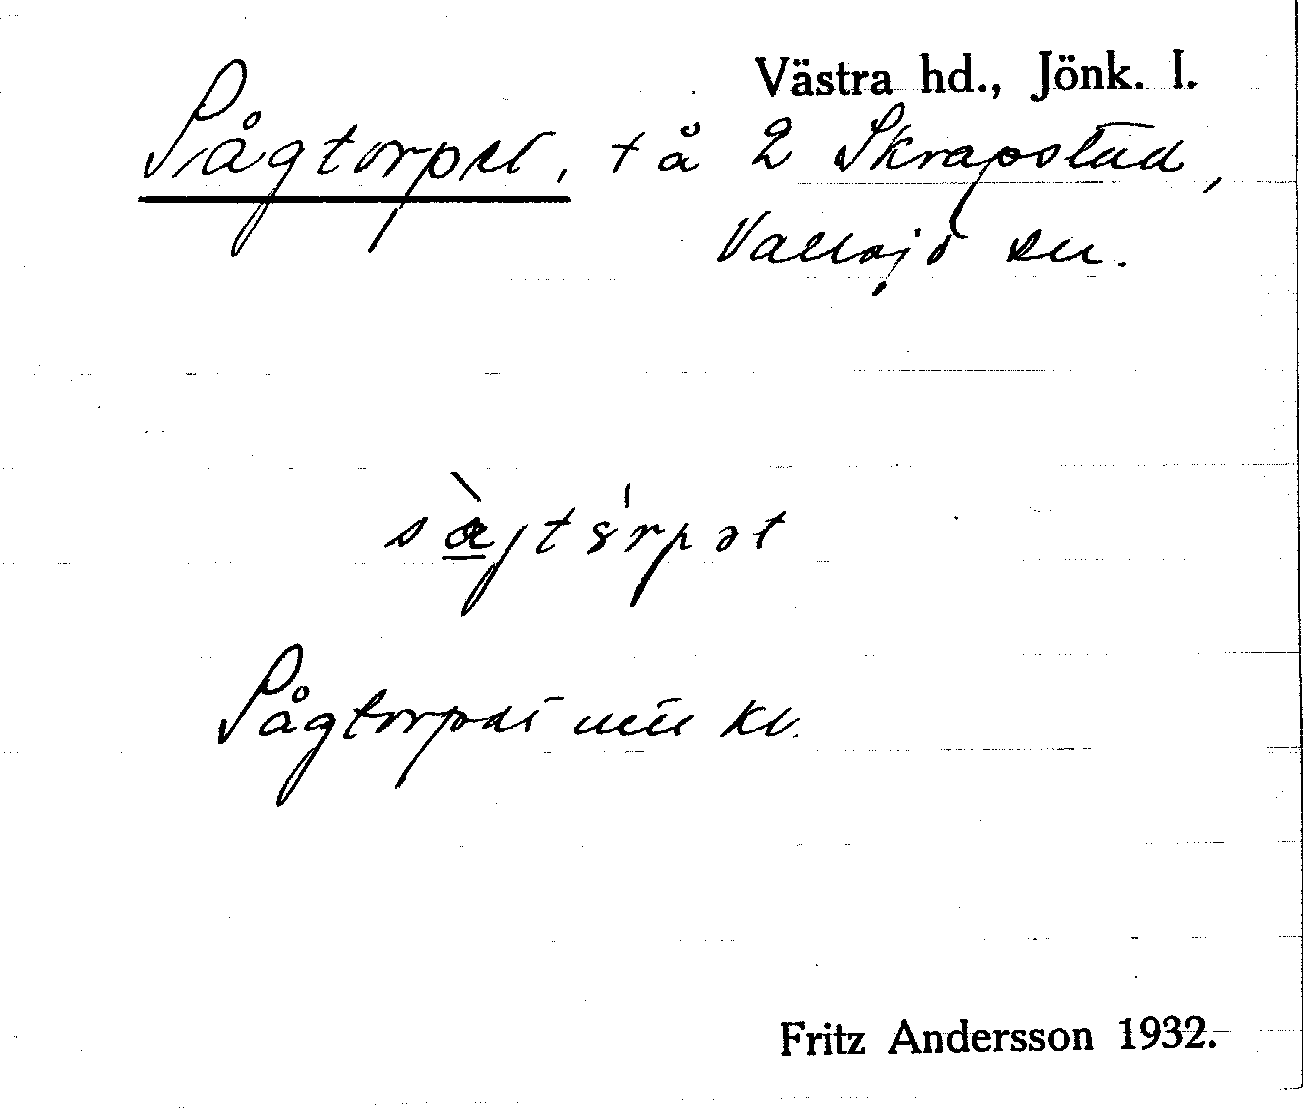 Västra hd., Jönk. l.
Sågtorpet, t å 2 Skrapstad,
Vallsjö sn.
Sågtorpet
Fritz Andersson 1932.